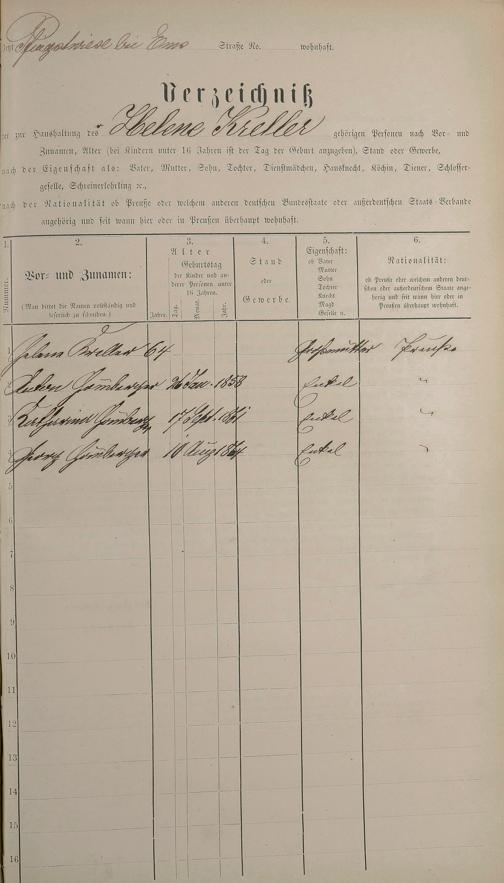 Pfingstwiese bei Ems Straße No. wohnhaft.
Verzeichniß
der zur Haushaltung des Helene Kreller gehörigen Personen nach Vor- und
Zunamen, Alter (bei Kindern unter 16 Jahren ist der Tag der Geburt anzugeben), Stand oder Gewerbe,
nach der Eigenschaft als: Vater, Mutter, Sohn, Tochter, Dienstmädchen, Hausknecht, Köchin, Diener, Schlosser-
geselle, Schreinerlehrling ꝛc.,
nach der Nationalität ob Preuße oder welchem anderen deutschen Bundesstaate oder außerdeutschen Staats-Verbande
angehörig und seit wann hier oder in Preußen überhaupt wohnhaft.
1. 2. 3. 4. 5. 6.
Nummer. Vor- und Zunamen: (Man bittet die Namen vollständig und leserlich zu schreiben.)
Alter
Geburtstag
der Kinder und an-
derer Personen unter
16 Jahren.
Jahre. Tag. Monat. Jahr.
Stand
oder
Gewerbe.
Eigenschaft:
ob Vater
Mutter
Sohn
Tochter
Knecht
Magd
Geselle u.
Nationalität:
ob Preuße oder welchem anderen deut-
schen oder außerdeutschen Staate ange-
hörig und seit wann hier oder in
Preußen überhaupt wohnhaft.
1 Helena Kreller 64 Großmutter Preuße
2 Anton 26 Jan. 1858 Enkel "
3 Katharina 17 Sept. 1861 Enkel "
4 Georg 10 Aug 1864 Enkel "
5
6
7
8
9
10
11
12
13
14
15
16